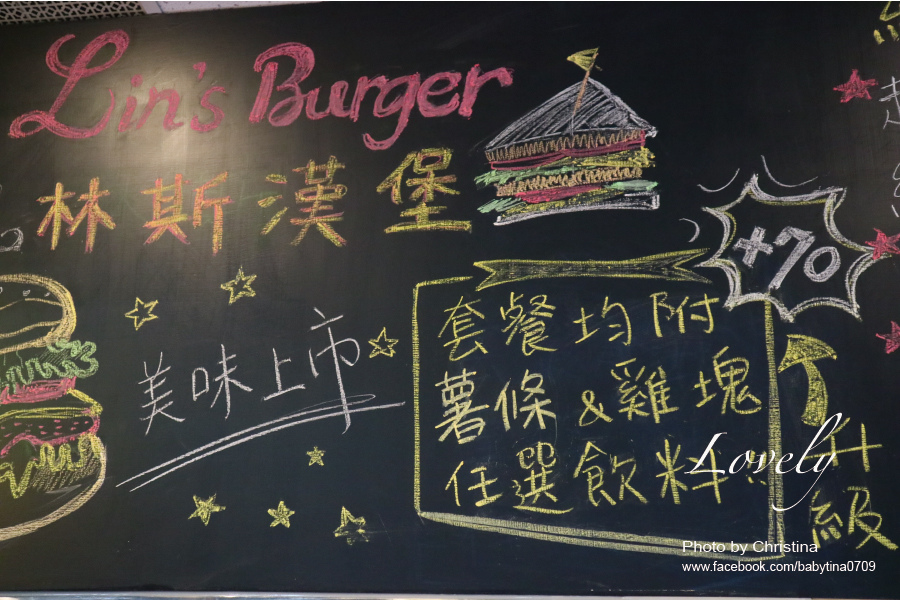 Lin's Burger
林斯漢堡
+70
美味上市
套餐均附
薯條&雞塊
任選飲料
升級
Lovely
Photo by Christina
www.facebook.com/babytina0709